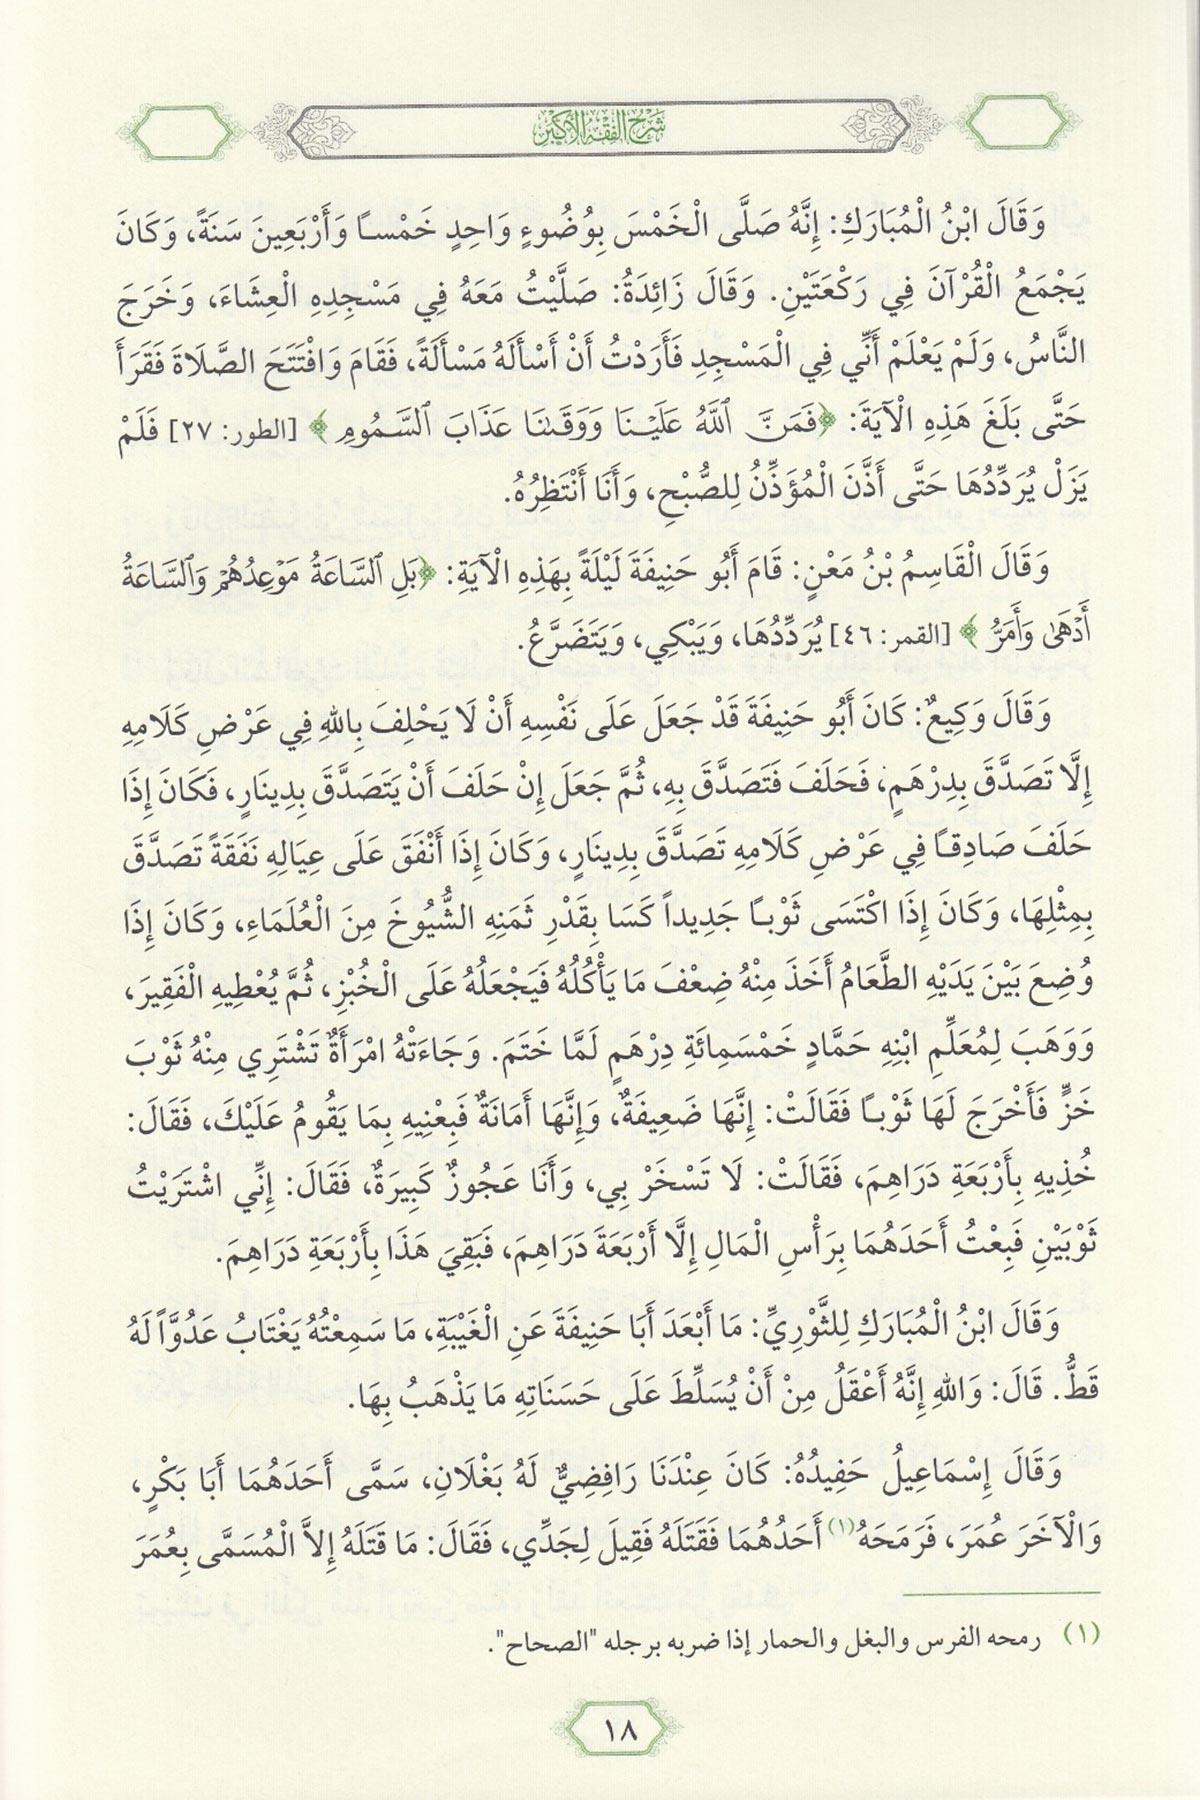 شرح الفقه الأكبر
وَقَالَ ابْنُ الْمُبَارَكِ: إِنَّهُ صَلَّى الْخَمْسَ بِوُضُوءٍ وَاحِدٍ خَمْساً وَأَرْبَعِينَ سَنَةً، وَكَانَ
يَجْمَعُ الْقُرْآنَ فِي رَكْعَتَيْنِ. وَقَالَ زَائِدَةُ: صَلَّيْتُ مَعَهُ فِي مَسْجِدِهِ الْعِشَاءَ، وَخَرَجَ
النَّاسُ، وَلَمْ يَعْلَمْ أَنِّي فِي الْمَسْجِدِ فَأَرَدْتُ أَنْ أَسْأَلَهُ مَسْأَلَةً، فَقَامَ وَافْتَتَحَ الصَّلَاةَ فَقَرَأَ
حَتَّى بَلَغَ هَذِهِ الْآيَةَ: ﴿فَمَنَّ ٱللَّهُ عَلَيْنَا وَوَقَىٰنَا عَذَابَ ٱلسَّمُومِ﴾ [الطور: ٢٧] فَلَمْ
يَزَلْ يُرَدِّدُهَا حَتَّى أَذَّنَ الْمُؤَذِّنُ لِلصُّبْحِ، وَأَنَا أَنْتَظِرُهُ.
وَقَالَ الْقَاسِمُ بْنُ مَعْنٍ: قَامَ أَبُو حَنِيفَةَ لَيْلَةً بِهَذِهِ الْآيَةِ: ﴿بَلِ ٱلسَّاعَةُ مَوْعِدُهُمْ وَٱلسَّاعَةُ
أَدْهَىٰ وَأَمَرُّ﴾ [القمر: ٤٦] يُرَدِّدُهَا، وَيَبْكِي، وَيَتَضَرَّعُ.
وَقَالَ وَكِيعٌ: كَانَ أَبُو حَنِيفَةَ قَدْ جَعَلَ عَلَى نَفْسِهِ أَنْ لَا يَحْلِفَ بِاللهِ فِي عَرْضِ كَلَامِهِ
إِلَّا تَصَدَّقَ بِدِرْهَمٍ، فَحَلَفَ فَتَصَدَّقَ بِهِ، ثُمَّ جَعَلَ إِنْ حَلَفَ أَنْ يَتَصَدَّقَ بِدِينَارٍ، فَكَانَ إِذَا
حَلَفَ صَادِقاً فِي عَرْضِ كَلَامِهِ تَصَدَّقَ بِدِينَارٍ، وَكَانَ إِذَا أَنْفَقَ عَلَى عِيَالِهِ نَفَقَةً تَصَدَّقَ
بِمِثْلِهَا، وَكَانَ إِذَا اكْتَسَى ثَوْباً جَدِيداً كَسَا بِقَدْرِ ثَمَنِهِ الشُّيُوخَ مِنَ الْعُلَمَاءِ، وَكَانَ إِذَا
وُضِعَ بَيْنَ يَدَيْهِ الطَّعَامُ أَخَذَ مِنْهُ ضِعْفَ مَا يَأْكُلُهُ فَيَجْعَلُهُ عَلَى الْخُبْزِ، ثُمَّ يُعْطِيهِ الْفَقِيرَ،
وَوَهَبَ لِمُعَلِّمِ ابْنِهِ حَمَّادٍ خَمْسَمِائَةِ دِرْهَمٍ لَمَّا خَتَمَ. وَجَاءَتْهُ امْرَأَةٌ تَشْتَرِي مِنْهُ ثَوْبَ
خَزٍّ فَأَخْرَجَ لَهَا ثَوْباً فَقَالَتْ: إِنَّهَا ضَعِيفَةٌ، وَإِنَّهَا أَمَانَةٌ فَبِعْنِيهِ بِمَا يَقُومُ عَلَيْكَ، فَقَالَ:
خُذِيهِ بِأَرْبَعَةِ دَرَاهِمَ، فَقَالَتْ: لَا تَسْخَرْ بِي، وَأَنَا عَجُوزٌ كَبِيرَةٌ، فَقَالَ: إِنِّي اشْتَرَيْتُ
ثَوْبَيْنِ فَبِعْتُ أَحَدَهُمَا بِرَأْسِ الْمَالِ إِلَّا أَرْبَعَةَ دَرَاهِمَ، فَبَقِيَ هَذَا بِأَرْبَعَةِ دَرَاهِمَ.
وَقَالَ ابْنُ الْمُبَارَكِ لِلثَّوْرِيِّ: مَا أَبْعَدَ أَبَا حَنِيفَةَ عَنِ الْغَيْبَةِ، مَا سَمِعْتُهُ يَغْتَابُ عَدُوًّا لَهُ
قَطُّ. قَالَ: وَاللهِ إِنَّهُ أَعْقَلُ مِنْ أَنْ يُسَلِّطَ عَلَى حَسَنَاتِهِ مَا يَذْهَبُ بِهَا.
وَقَالَ إِسْمَاعِيلُ حَفِيدُهُ: كَانَ عِنْدَنَا رَافِضِيٌّ لَهُ بَغْلَانِ، سَمَّى أَحَدَهُمَا أَبَا بَكْرٍ،
وَالْآخَرَ عُمَرَ، فَرَمَحَهُ(١) أَحَدُهُمَا فَقَتَلَهُ فَقِيلَ لِجَدِّي، فَقَالَ: مَا قَتَلَهُ إِلاَّ الْمُسَمَّى بِعُمَرَ
(١) رمحه الفرس والبغل والحمار إذا ضربه برجله "الصحاح".
١٨